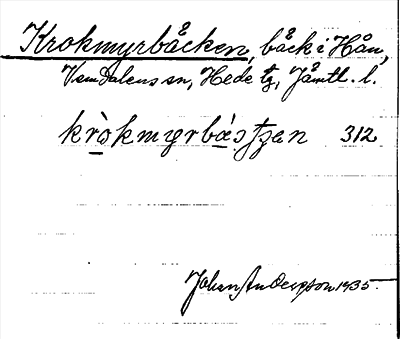 Krokmyrbåcken, båck i Hån,
Vemdalens sn, Hede tg, Jämtl. l.
kròkmyrbàstzen 312
Johan Andersson 1935.